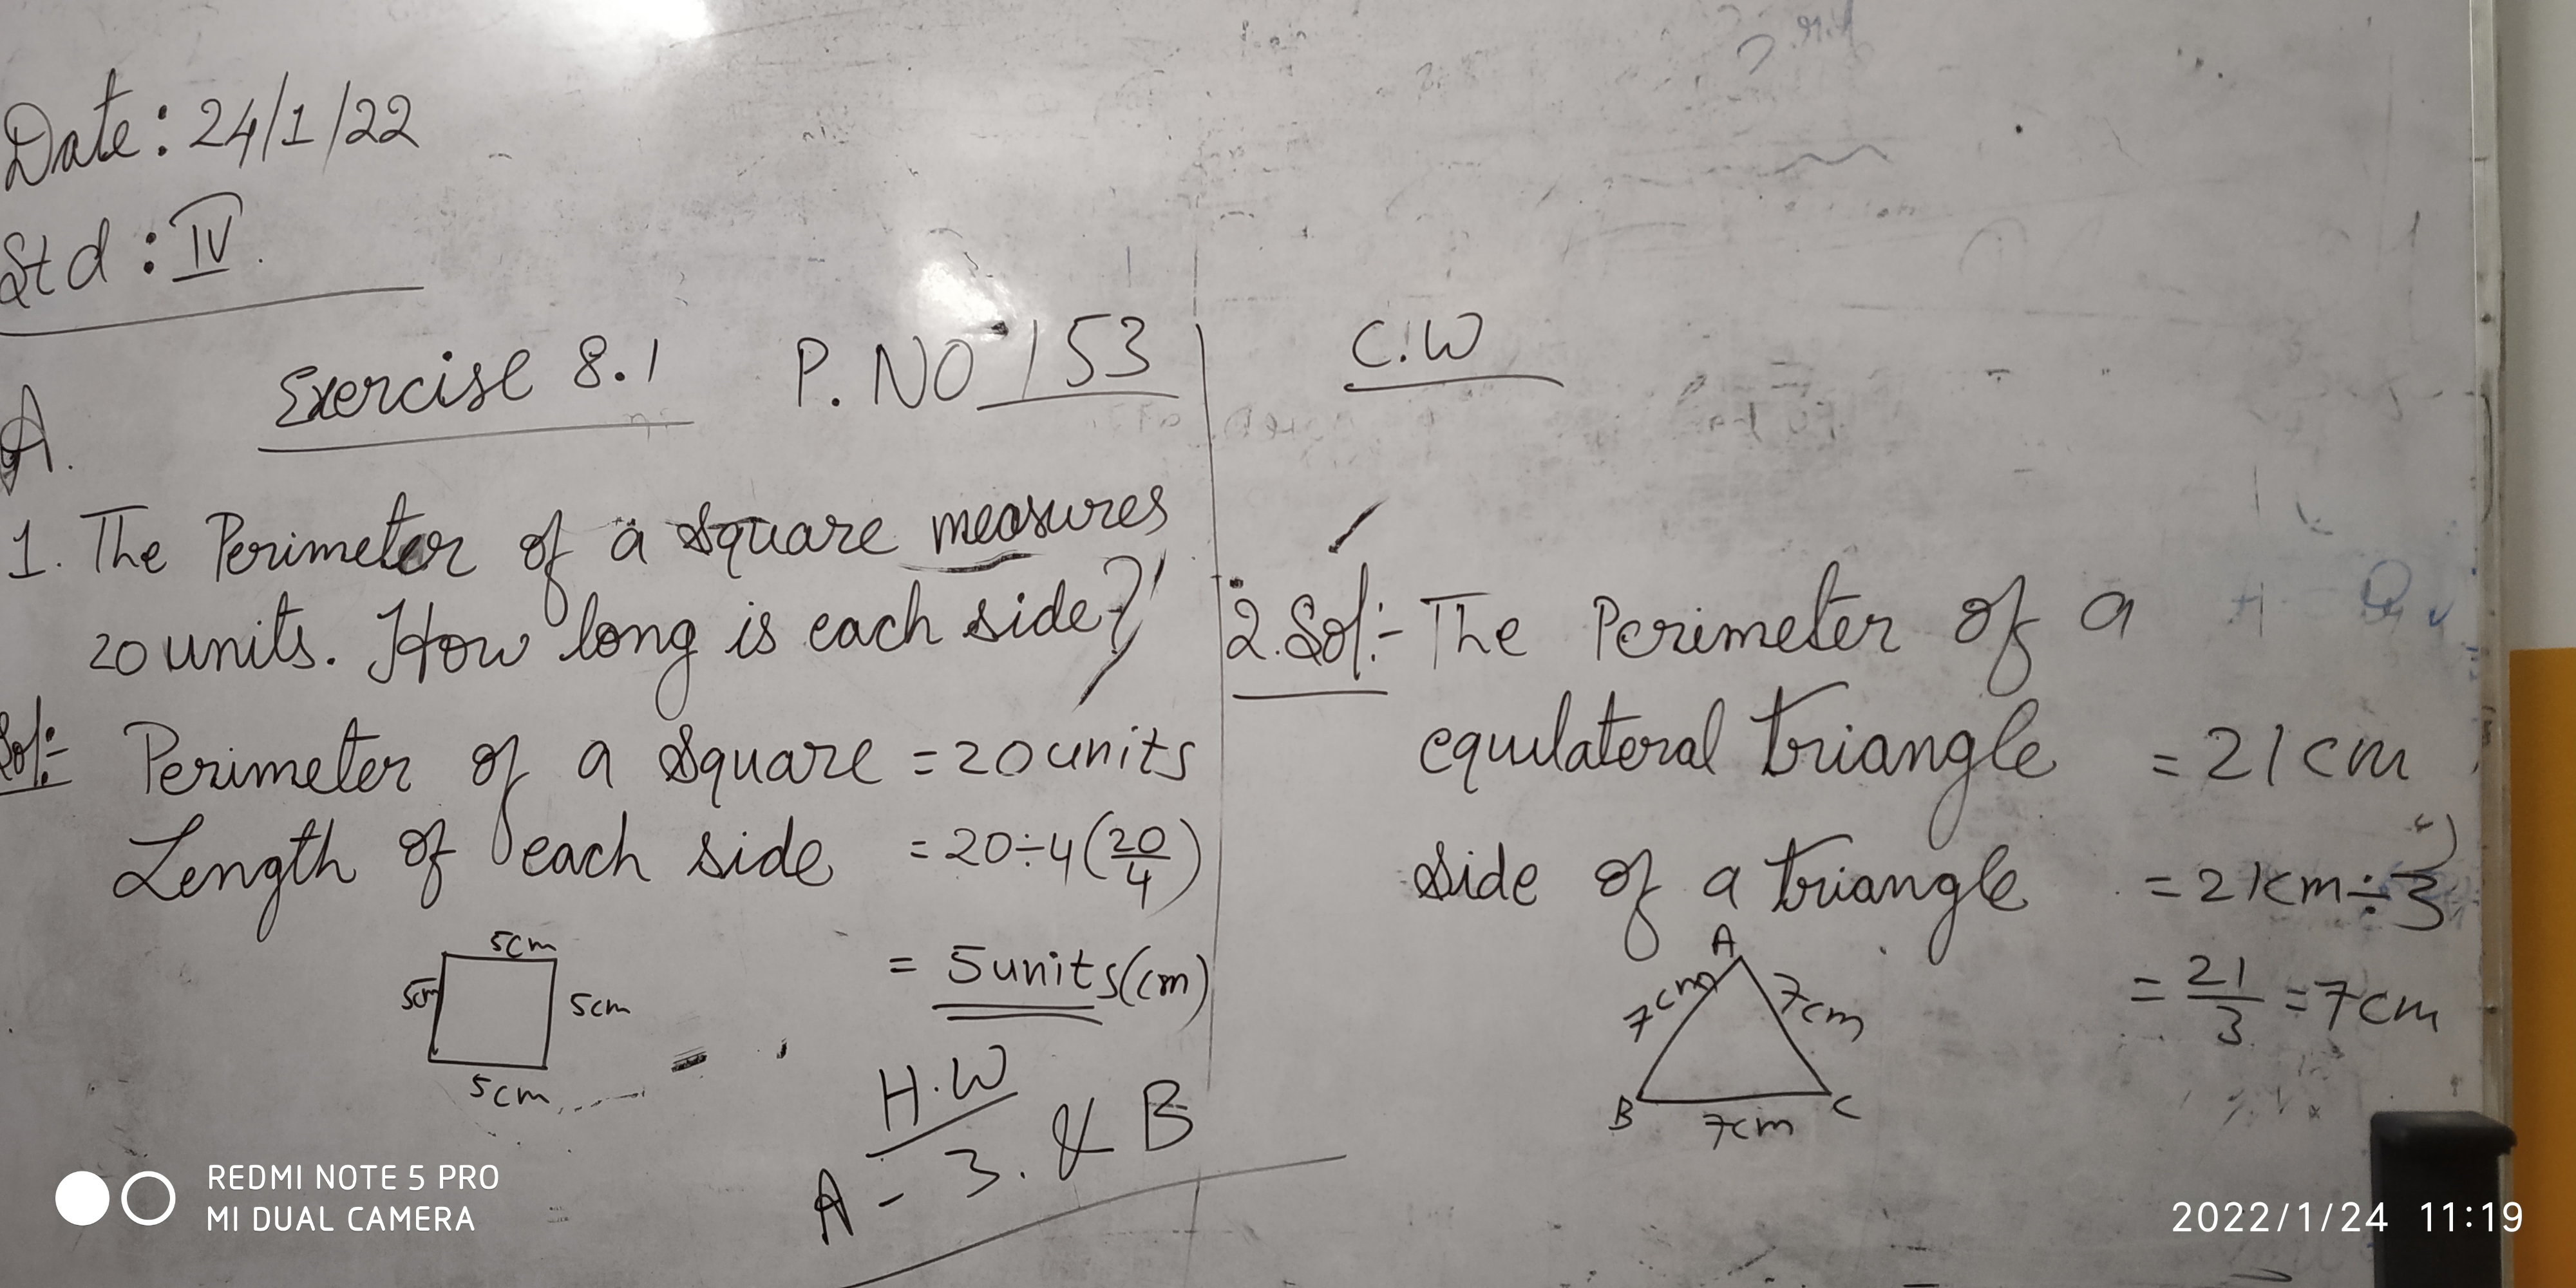 Date: 24/1/22
Std: IV.
Exercise 8.1 P. NO 153
A.
1. The Perimeter of a square measures
20 units. How long is each side?
Sol:- Perimeter of a square = 20 units
Length of each side = 20÷4 (20/4)
= 5 units (cm)
5cm
5cm
5cm
5cm
H.W
A - 3. & B
C.W
2. Sol:- The Perimeter of a
equilateral triangle = 21cm
side of a triangle = 21cm÷3
= 21/3 = 7cm
A
7cm
7cm
B
C
7cm
REDMI NOTE 5 PRO
MI DUAL CAMERA
2022/1/24 11:19